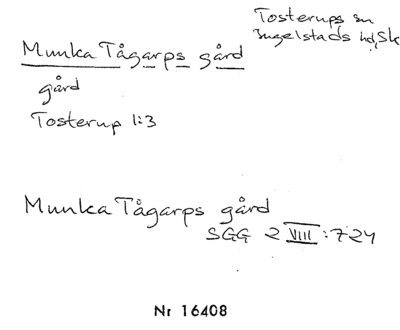 Tosterups sn
Ingelstads hd, Sk
Munka Tågarps gård
gård
Tosterup 1:3
Munka Tågarps gård
SGG 2 VIII :724
Nr 16408